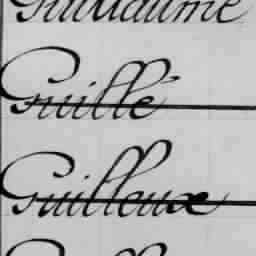 Guillaume
Guillé
Guilleux